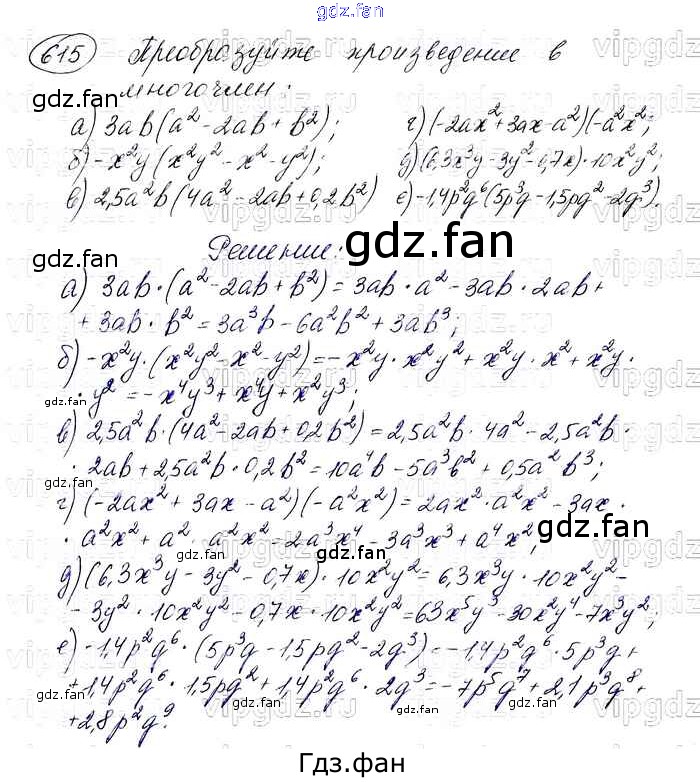 gdz.fan
615 Преобразуйте произведение в
многочлен:
а) 3ab(a²-2ab+b²); г) (-2ax²+3ax-a²)(-a²x²;
б) -x²y(x²y²-x²-y²); д) (6,3x³y-3y²-0,7x)·10x²y²;
в) 2,5a²b(4a²-2ab+0,2b²) е) -1,4p²g⁶(5p³g-1,5pg²-2g³).
Решение:
gdz.fan
а) 3ab·(a²-2ab+b²)=3ab·a²-3ab·2ab+
+3ab·b²=3a³b-6a²b²+3ab³;
б) -x²y·(x²y²-x²-y²)=-x²y·x²y²+x²y·x²+x²y·
·y²=-x⁴y³+x⁴y+x²y³;
в) 2,5a²b·(4a²-2ab+0,2b²)=2,5a²b·4a²-2,5a²b·
·2ab+2,5a²b·0,2b²=10a⁴b-5a³b²+0,5a²b³;
г) (-2ax²+3ax-a²)(-a²x²)=2ax²·a²x²-3ax·
·a²x²+a²·a²x²=2a³x⁴-3a³x³+a⁴x²;
д) (6,3x³y-3y²-0,7x)·10x²y²=6,3x³y·10x²y²-
-3y²·10x²y²-0,7x·10x²y²=63x⁵y³-30x²y⁴-7x³y²;
е) -1,4p²g⁶·(5p³g-1,5pg²-2g³)=-1,4p²g⁶·5p³g+
+1,4p²g⁶·1,5pg²+1,4p²g⁶·2g³=-7p⁵g⁷+2,1p³g⁸+
+2,8p²g⁹.
Гдз.фан